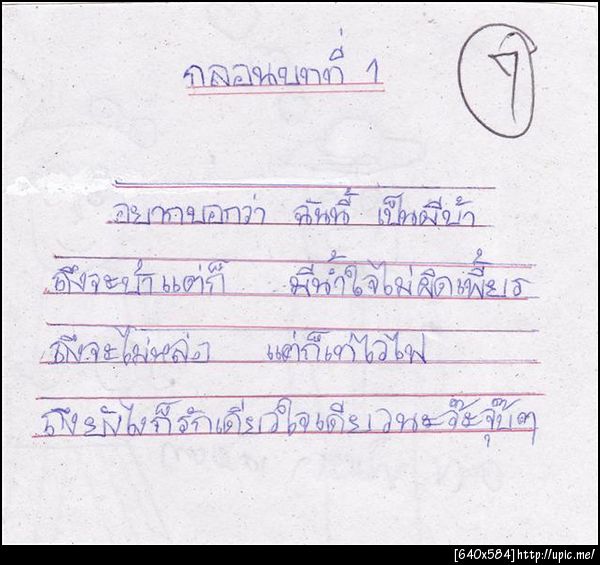 กลอนบทที่ 1
อยากบอกว่า ฉันนี้ เป็นผีบ้า
ถึงจะบ้าแต่ก็ มีน้ำใจไม่ผิดเพี้ยร
ถึงจะไม่หล่อ แต่ก็เท่ไวไฟ
ถึงยังไงก็รักเดียวใจเดียวนะจ๊ะจุ๊บๆ
[640x584]http://upic.me/